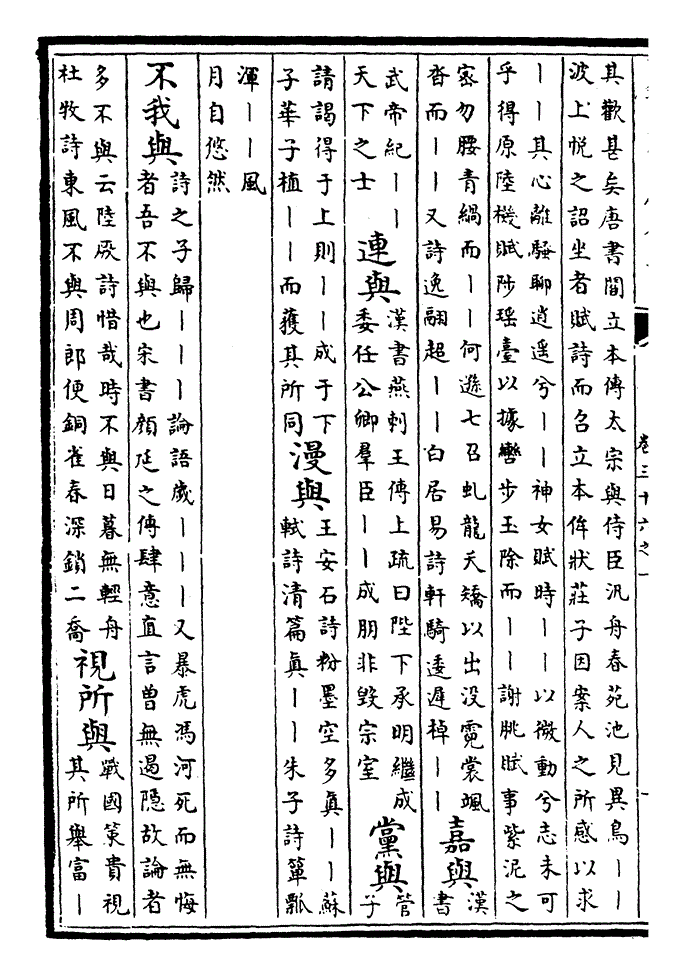 卷三十六之一
其歡甚矣唐書閻立本傳太宗與侍臣汎舟春苑池見異鳥丨丨
波上悦之詔坐者賦詩而召立本侔狀莊子因案人之所感以求
丨丨其心離騷聊逍遥兮丨丨神女賦時丨丨以微動兮志未可
乎得原陸機賦陟瑶臺以據轡步玉除而丨丨謝朓賦事紫泥之
密勿腰青緺而丨丨何遜七召虬龍天矯以出没霓裳颯
沓而丨丨又詩逸翮超丨丨白居易詩軒騎逶遲棹丨丨
嘉與
漢
書
武帝紀丨丨
天下之士
連與
漢書燕刺王傳上疏曰陛下承明繼成
委任公卿羣臣丨丨成朋非毁宗室
黨與
管
子
請謁得于上則丨丨成于下
子華子植丨丨而獲其所同
漫與
王安石詩粉墨空多真丨丨蘇
軾詩清篇真丨丨朱子詩簞瓢
渾丨丨風
月自悠然
不我與
詩之子歸丨丨丨論語歲丨丨丨又暴虎馮河死而無悔
者吾不與也宋書顔延之傳肆意直言曾無遏隱故論者
多不與云陸厥詩惜哉時不與日暮無輕舟
杜牧詩東風不與周郎便銅雀春深鎖二喬
視所與
戰國策貴視
其所舉富丨